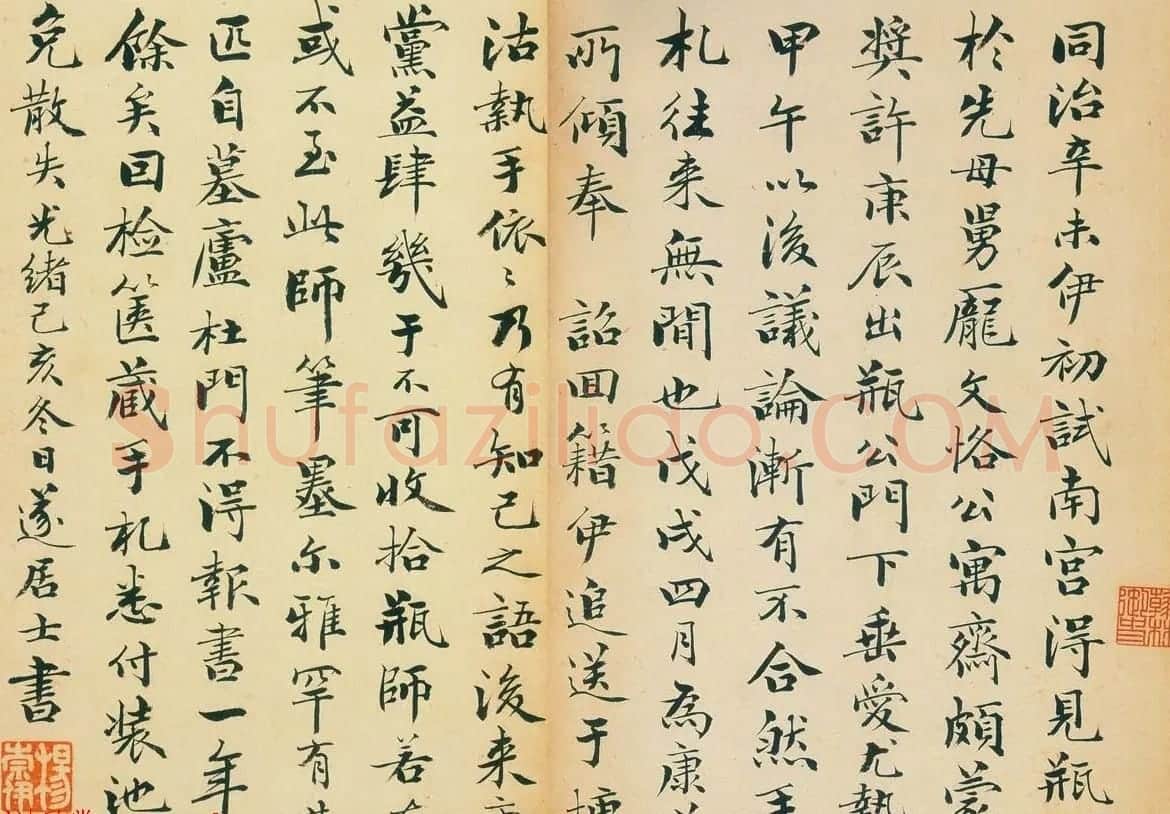 同治辛未伊初試南宮得見瓶
於先母舅龎文恪公寓齋頗蒙
奨許庚辰出瓶公門下垂愛尤
甲午以後議論漸有不合然手
札往来無間也戊戌四月為康
所傾奉 詔回籍伊追送于
沽執手依〻乃有知己之語後来
黨益肆幾于不可收拾瓶師若
或不至此師筆墨尔雅罕有
匹自墓廬杜門不得報書一年
餘矣回檢篋蔵手札悉付装池
免散失光緒己亥冬日遂居士書
Shufaziliao.COM